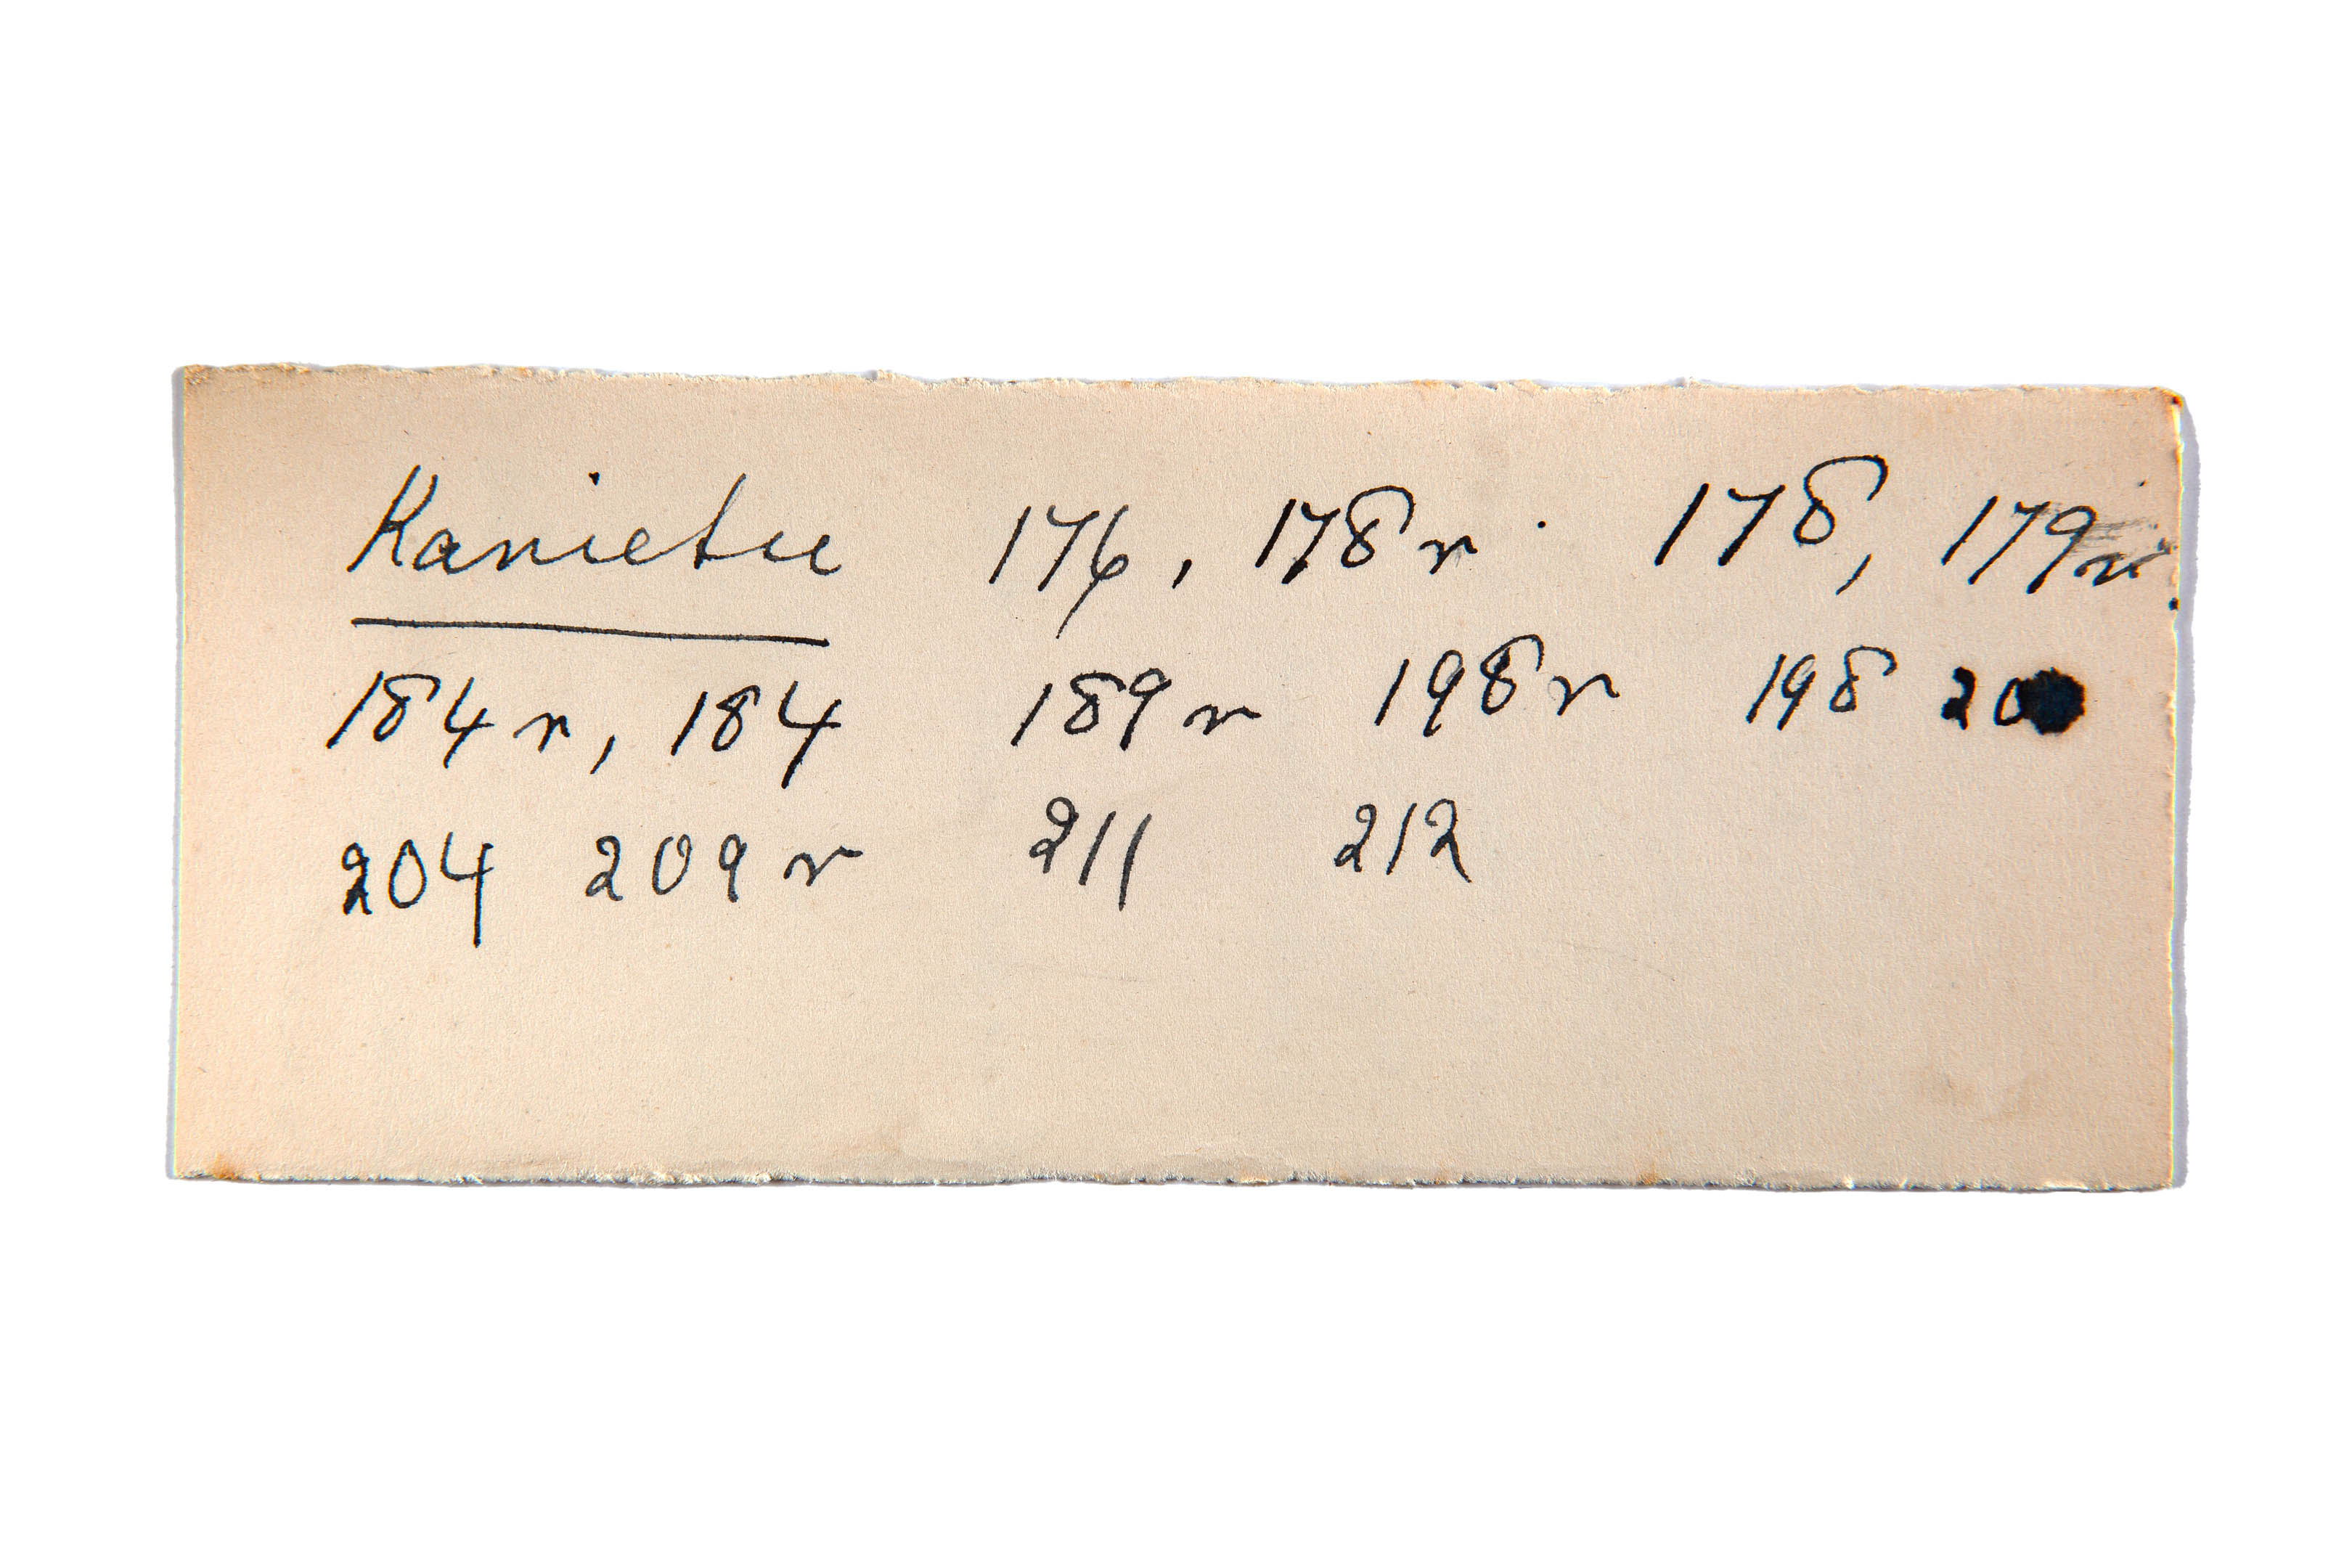 Kanietu 176, 178r 178, 179r
184r, 184 189r 198r 198
204 209r 211 212